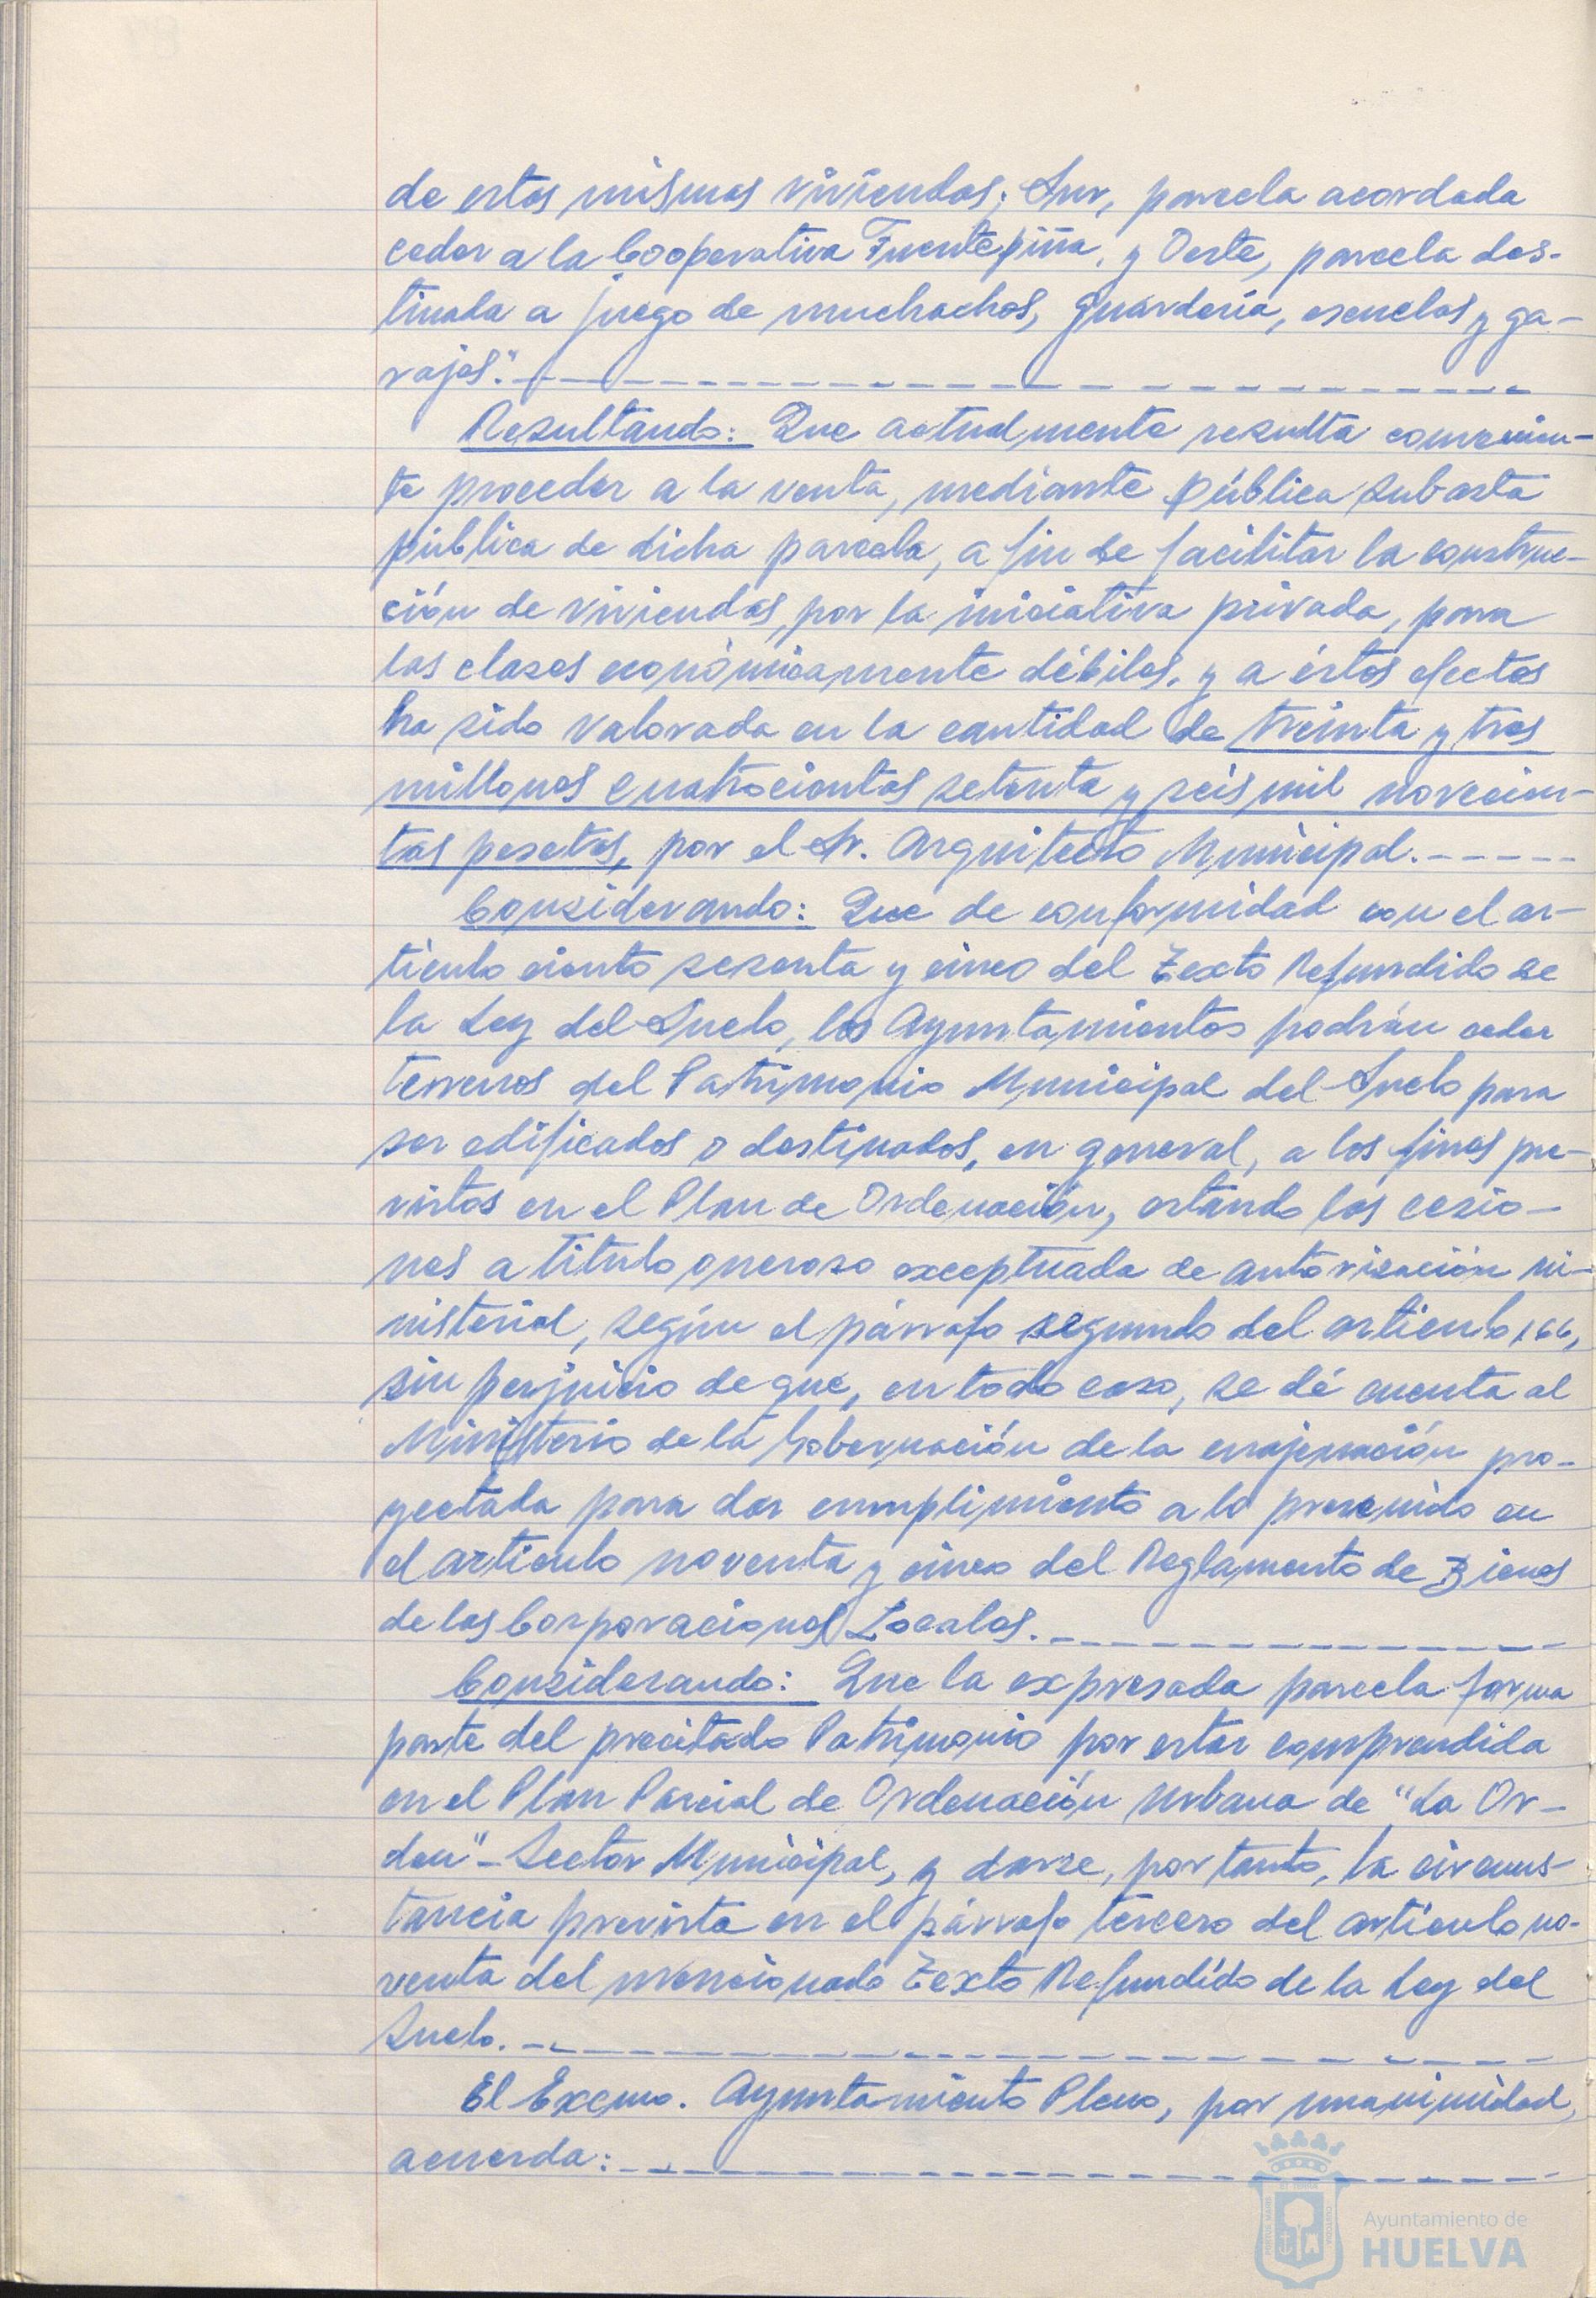 de estas mismas viviendas; Sur, parcela acordada
ceder a la Cooperativa Fuentepiña, y Oeste, parcela des-
tinada a juego de muchachos, guardería, escuelas y ga-
rajes".
Resultando: Que actualmente resulta convenien-
te proceder a la venta, mediante pública subasta
pública de dicha parcela, a fin de facilitar la construc-
ción de viviendas, por la iniciativa privada, para
las clases económicamente débiles, y a éstos efectos
ha sido valorada en la cantidad de treinta y tres
millones cuatrocientas setenta y seis mil novecien-
tas pesetas, por el Sr. Arquitecto Municipal.
Considerando: Que de conformidad con el ar-
tículo ciento sesenta y cinco del Texto Refundido de
la Ley del Suelo, los Ayuntamientos podrán ceder
terrenos del Patrimonio Municipal del Suelo para
ser edificados o destinados, en general, a los fines pre-
vistos en el Plan de Ordenación, estando las cesio-
nes a título oneroso exceptuada de autorización mi-
nisterial, según el párrafo segundo del artículo 166,
sin perjuicio de que, en todo caso, se dé cuenta al
Ministerio de la Gobernación de la enajenación pro-
yectada para dar cumplimiento a lo prevenido en
el artículo noventa y cinco del Reglamento de Bienes
de las Corporaciones Locales.
Considerando: Que la expresada parcela forma
parte del precitado Patrimonio por estar comprendida
en el Plan Parcial de Ordenación Urbana de "La Or-
den" - Sector Municipal, y darse, por tanto, la circuns-
tancia prevista en el párrafo tercero del artículo no-
venta del mencionado Texto Refundido de la Ley del
Suelo.
El Excmo. Ayuntamiento Pleno, por unanimidad,
acuerda:
Ayuntamiento de
HUELVA